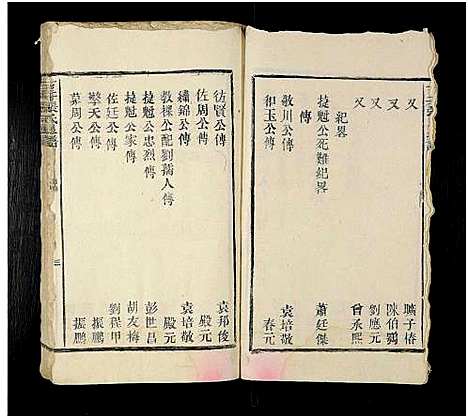 又 曠子椿
又 陳伯鷃
又 劉應元
又 曾承熙
紀畧
捷魁公死難紀畧 蕭廷傑
傳
敎川公傳 袁培敬
和玉公傳 春元
彷賢公傳 袁邦俊
佐周公傳 殿元
繡錦公傳 袁培敬
敎樑公配劉孺人傳 殿元
捷魁公忠烈傳 彭世昌
捷魁公家傳 胡友梅
佐廷公傳 劉程甲
擎天公傳 振鵬
慕周公傳 振鵬
三